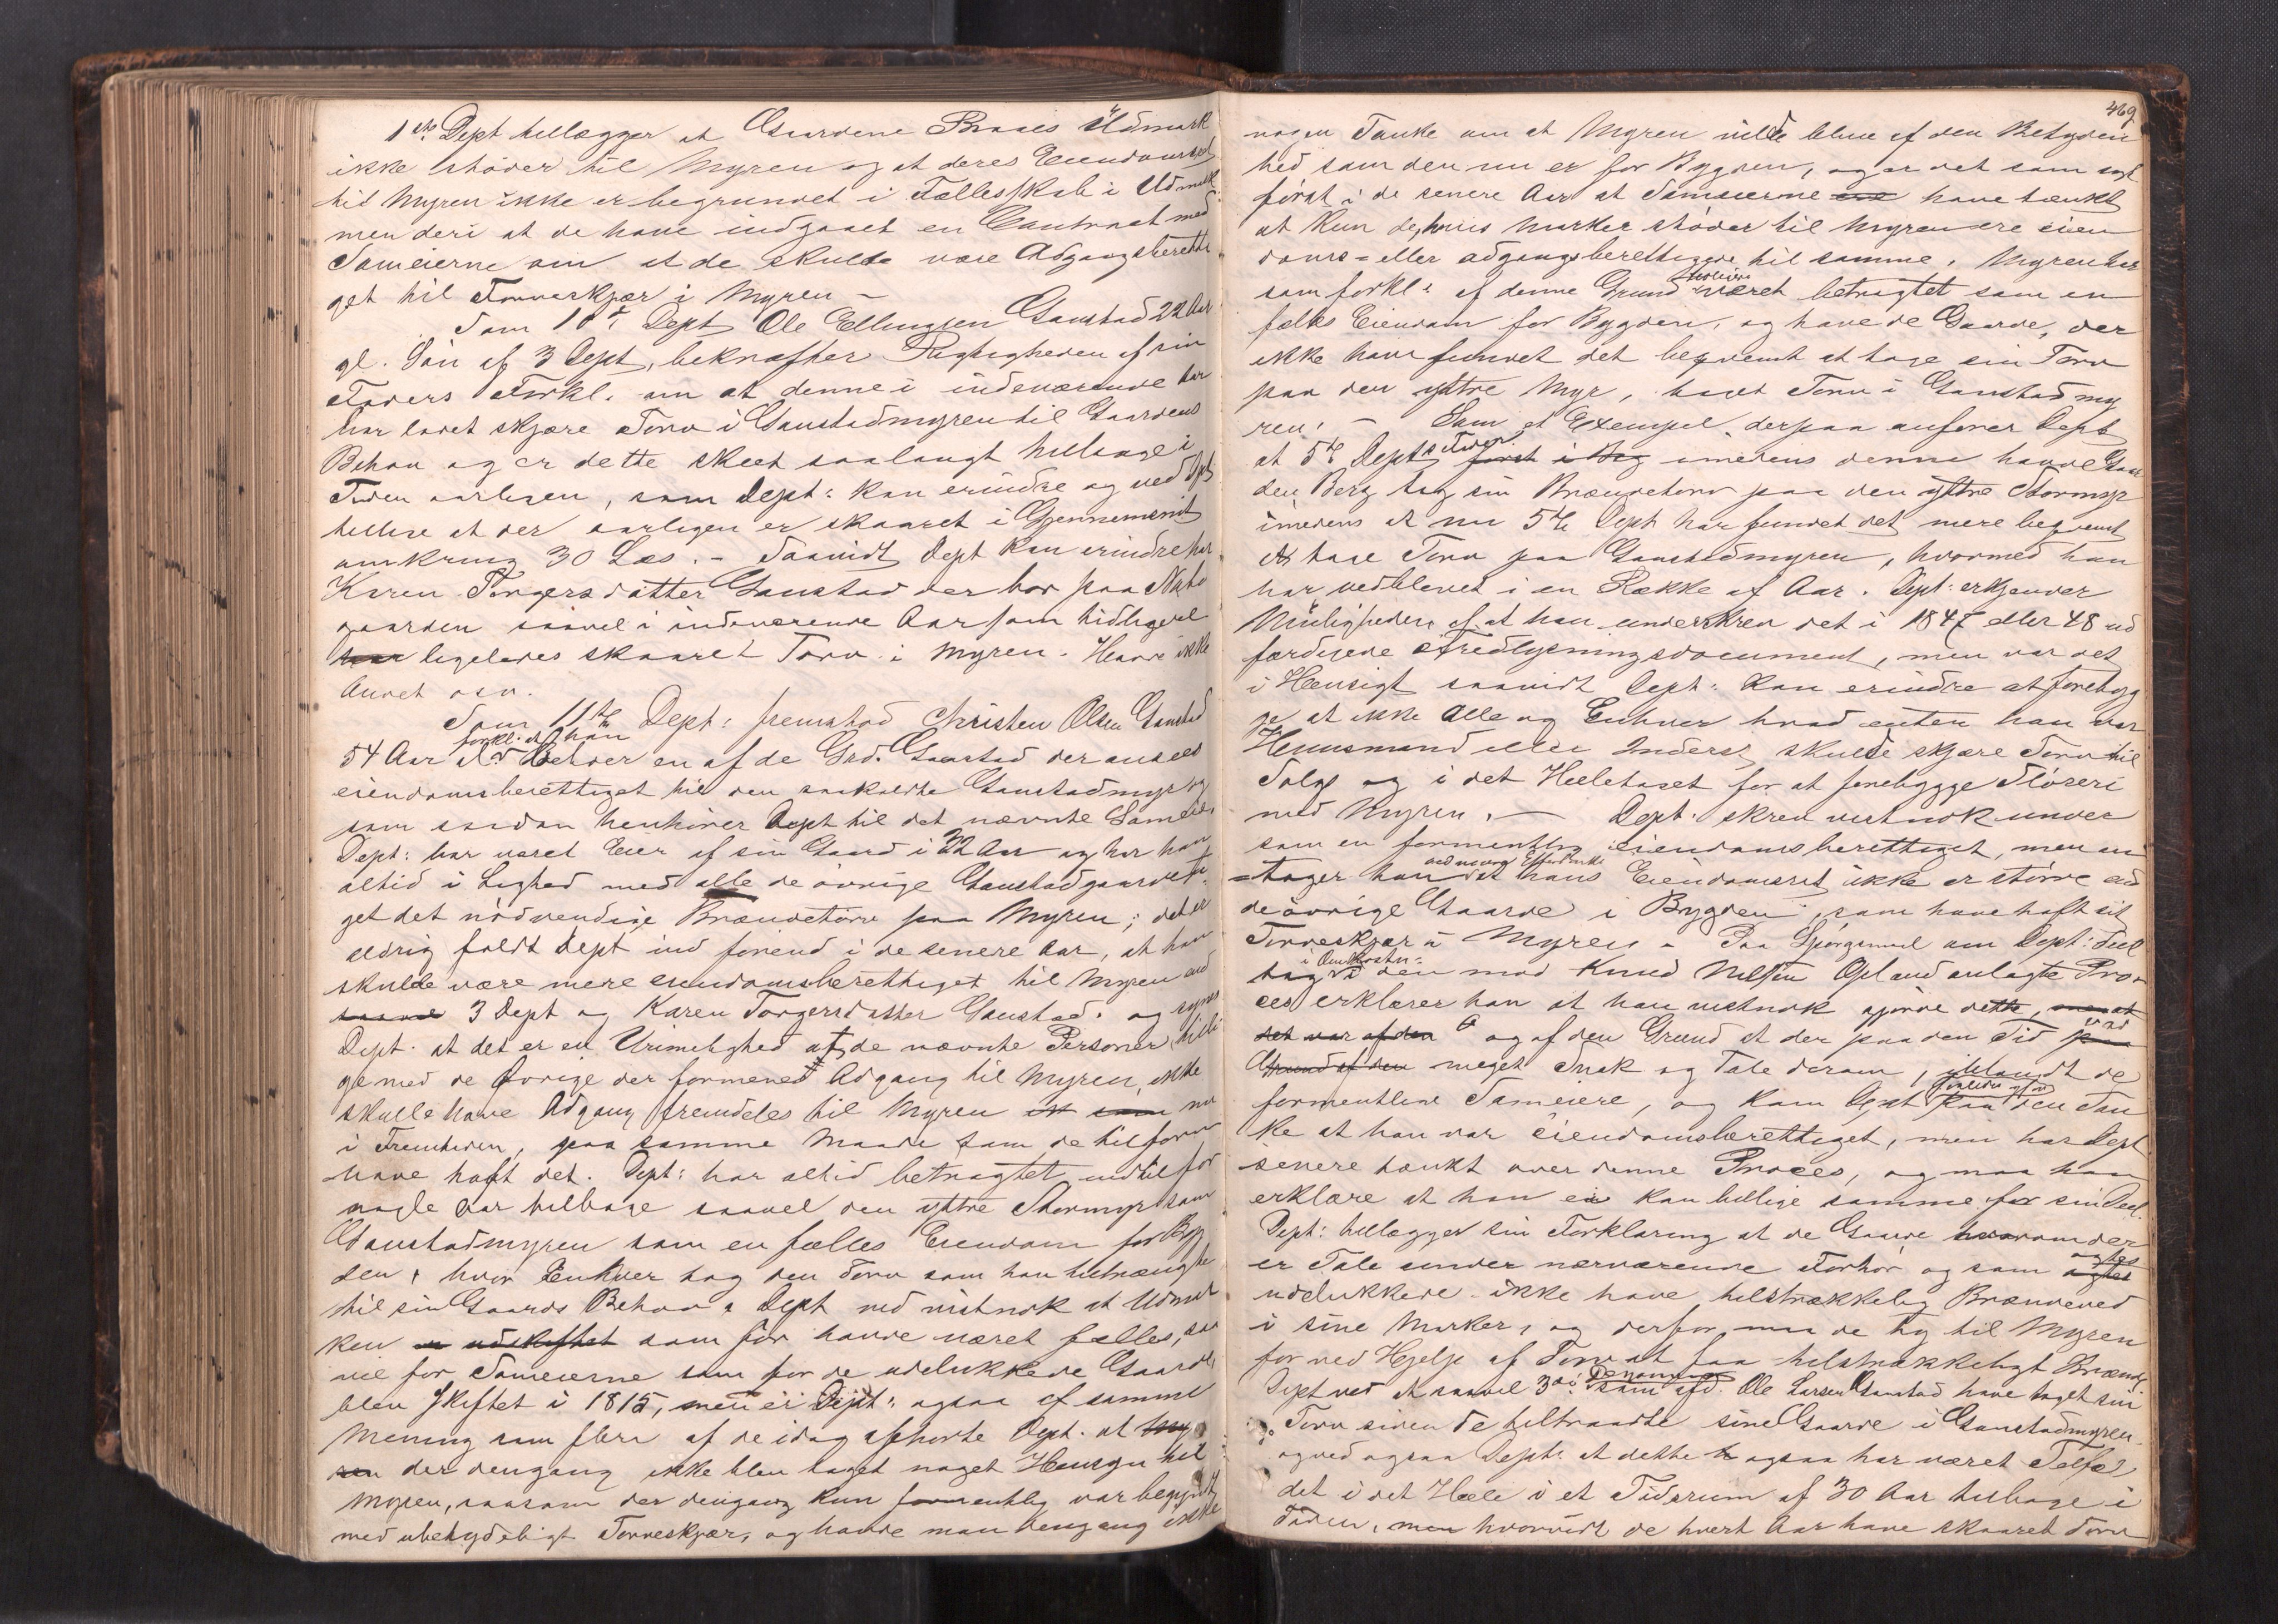 1ste Dept tillægger at Gaardene Braaes Udmark
ikke støder til Myren og at deres Eiendomsret
til Myren ikke er begrundet i Fællesskab i Udmark
men deri at de have indgaaet en Contract med
Sameierne om at de skulde være Adgangsberetti
get til Torveskjær i Myren –
Som 10de Dept Ole Ellingsen Gaustad 22 Aar
gl. Søn af 3 Dept, bekræfter Rigtigheden af sin
Faders Forkl. om at denne i indeværende Aar
har ladet skjære Torv i Gaustadmyren til Gaardens
Behov og er dette skeet saalangt tilbage i
Tiden aarligen, som Dept: kan erindre og ved Dpt
tillige at der aarligen er skaaret i Gjennemsnit
omkring 30 Læs. – Saavidt Dept kan erindre har
Karen Torgersdatter Gaustad der bor paa Nabo
gaarden saavel i indeværende Aar som tidligere
har ligeledes skaaret Torv i Myren. Havde ikke
Andet osv.
Som 11te Dept: fremstod Christen Olsen Gaustad
forkl. at han
54 Aar er Beboer en af de Grd. Gaustad der ansees
eiendomsberettiget til den saakaldte Gaustadmyr og
som saadan henhører Dept til det nævnte Sameie
Dept: har været Eier af sin Gaard i 22 Aar og har han
altid i Lighed med alle de øvrige Gaustadgaarde ta
get det nødvendige Brændetorv paa Myren; det er
aldrig faldt Dept ind førend i de senere Aar, at han
skulde være mere eiendomsberettiget til Myren end
3 Dept og Karen Torgersdatter Gaustad. og synes
Dept. at det er en Urimelighed at de nævnte Personer tilli
ge med de Øvrige der formenes Adgang til Myren, ikke
skulle have Adgang fremdeles til Myren nu
i Fremtiden, paa samme Maade som de tilforn
have haft det. Dept: har altid betragtet indtil for
nogle Aar tilbage saavel den yttre Stormyr som
Gaustadmyren som en fælles Eiendom for Byg
den, hvor Enhver tog den Torv som han tiltrængte
til sin Gaards Behov. Dept ved vistnok at Udmar
ken er udskiftet som før havde været fælles, saa
vel for Sameierne som for de udelukkede Gaarde
blev skiftet i 1815, men er Dept: ogsaa af samme
Mening som flere af de idag afhørte Dept. at My
ren der dengang ikke blev taget noget Hensyn til
Myren, saasom der dengang kun formentlig var begyndt
med ubetydeligt Torveskjær, og havde man dengang ikke
469
nogen Tanke om at Myren vilde blive af den Betyden
hed som den nu er for Bygden, og er det som sagt
først i de senere Aar at Sameierne ere have tænkt
at kun de, hvis Marker støder til Myren ere eien
doms- eller adgangsberettigede til samme. Myren har
som forkl: af denne Grund været betragtet som en
fælles Eiendom for Bygden, og have de Gaarde, der
ikke have fundet det beqvemt at tage sin Torv
paa den yttre Myr, taget Torv i Gaustadmy
ren. – Som et Exempel derpaa anfører Dept
at 5te Dept først i imedens denne havde Gaar
den Berg tog sin Brændetorv paa den yttre Stormyr
imedens at nu 5te Dept har fundet det mere beqvemt
at tage Torv paa Gaustadmyren, hvormed han
har vedblevet i en Række af Aar. Dept: erkjender
Muligheden af at han underskrev det i 1847 eller 48 ud
færdigede Fredlysningsdocument, men var det
i Hensigt saavidt Dept: kan erindre at forebyg
ge at ikke Alle og Enhver hvad enten han var
Huusmand eller Inderst skulde skjære Torv til
Salg og i det Heletaget for at forebygge Sløseri
med Myren. – Dept: skrev vistnok under
som en formentlig eiendomsberettiget, men an
ved nøiere Eftertanke
tager han at hans Eiendomsret ikke er større end
de øvrige Gaarde i Bygden, som have haft sit
Torveskjær i Myren – Paa Spørgsmaal om Dept: Deel
i Omkostn:
tog i den mod Knud Nilsen Opland anlagte Pro-
ces erklærer han at han vistnok gjorde dette, men at
det var af den og af den Grund at der paa den Tid var
Grund af den meget Snak og Tale derom, iblandt de
formentlige Sameiere, og kom Dept paa den Tan
ke at han var eiendomsberettiget, men har Dept
senere tænkt over denne Proces, og maa han
erklære at han ei kan billige samme for sin Deel.
Dept: tillægger sin Forklaring at de Gaarde hvorom der
er Tale under nærværende Forhør og som agtes
udelukkede ikke have tilstrækkelig Brændeved
i sine Marker, og derfor maa de ty til Myren
for ved Hjelp af Torv at faa tilstrækkeligt Brænde
Dept ved at saavel 3die som afd. Ole Larsen Gaustad have taget sin
Torv siden de tiltraadte sine Gaarde i Gaustadmyren
og ved ogsaa Dept: at dette ogsaa har været Tilfæl
det i det Hele i et Tidsrum af 30 Aar tilbage i
Tiden, men hvorvidt de hvert Aar have skaaret Torv